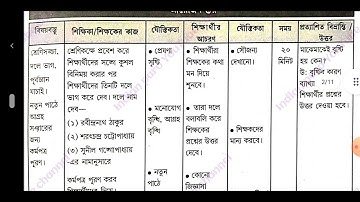 বিষয়বস্তু
শিক্ষিকা/শিক্ষকের কাজ
যৌক্তিকতা
শিক্ষার্থীর
আচরণ
যৌক্তিকতা
সময়
প্রত্যাশিত বিভ্রান্তি/
উত্তর
শ্রেণিসজ্জা,
দলে ভাগ,
পূর্বজ্ঞান
যাচাই।
নতুন পাঠে
আগ্রহ
সঞ্চারের
জন্য
কর্মপত্র
পূরণ।
শ্রেণিকক্ষে প্রবেশ করে
শিক্ষার্থীদের সঙ্গে কুশল
বিনিময় করার পর
শিক্ষার্থীদের তিনটি দলে
ভাগ করে দেব। দলে নাম
দেব—
(১) রবীন্দ্রনাথ ঠাকুর
(২) শরৎচন্দ্র চট্টোপাধ্যায়
(৩) সুনীল গঙ্গোপাধ্যায়
-এর নামানুসারে
কর্মপত্র পূরণ করব
• প্রেষণা
সৃষ্টি
• মনোযোগ
বৃদ্ধি, আগ্রহ
বৃদ্ধি
• নতুন
পাঠে
• শিক্ষার্থীরা
শিক্ষকের কথা
মন দিয়ে
শুনবে।
• তারা দলে
বলাবলি করে
শিক্ষকের
প্রশ্নের উত্তর
দেবে।
• কোনো
জিজ্ঞাসা
• সৌজন্য
দেখানো।
• শিক্ষকদের
মান্য করবে।
২০
মিনিট
মাঝেমাঝেই বৃষ্টি
হয় কেন?
উ: বৃষ্টির কারণ
ব্যাখ্যা
2/11
শিক্ষার্থীর প্রশ্নের
উত্তর দেওয়া হবে।